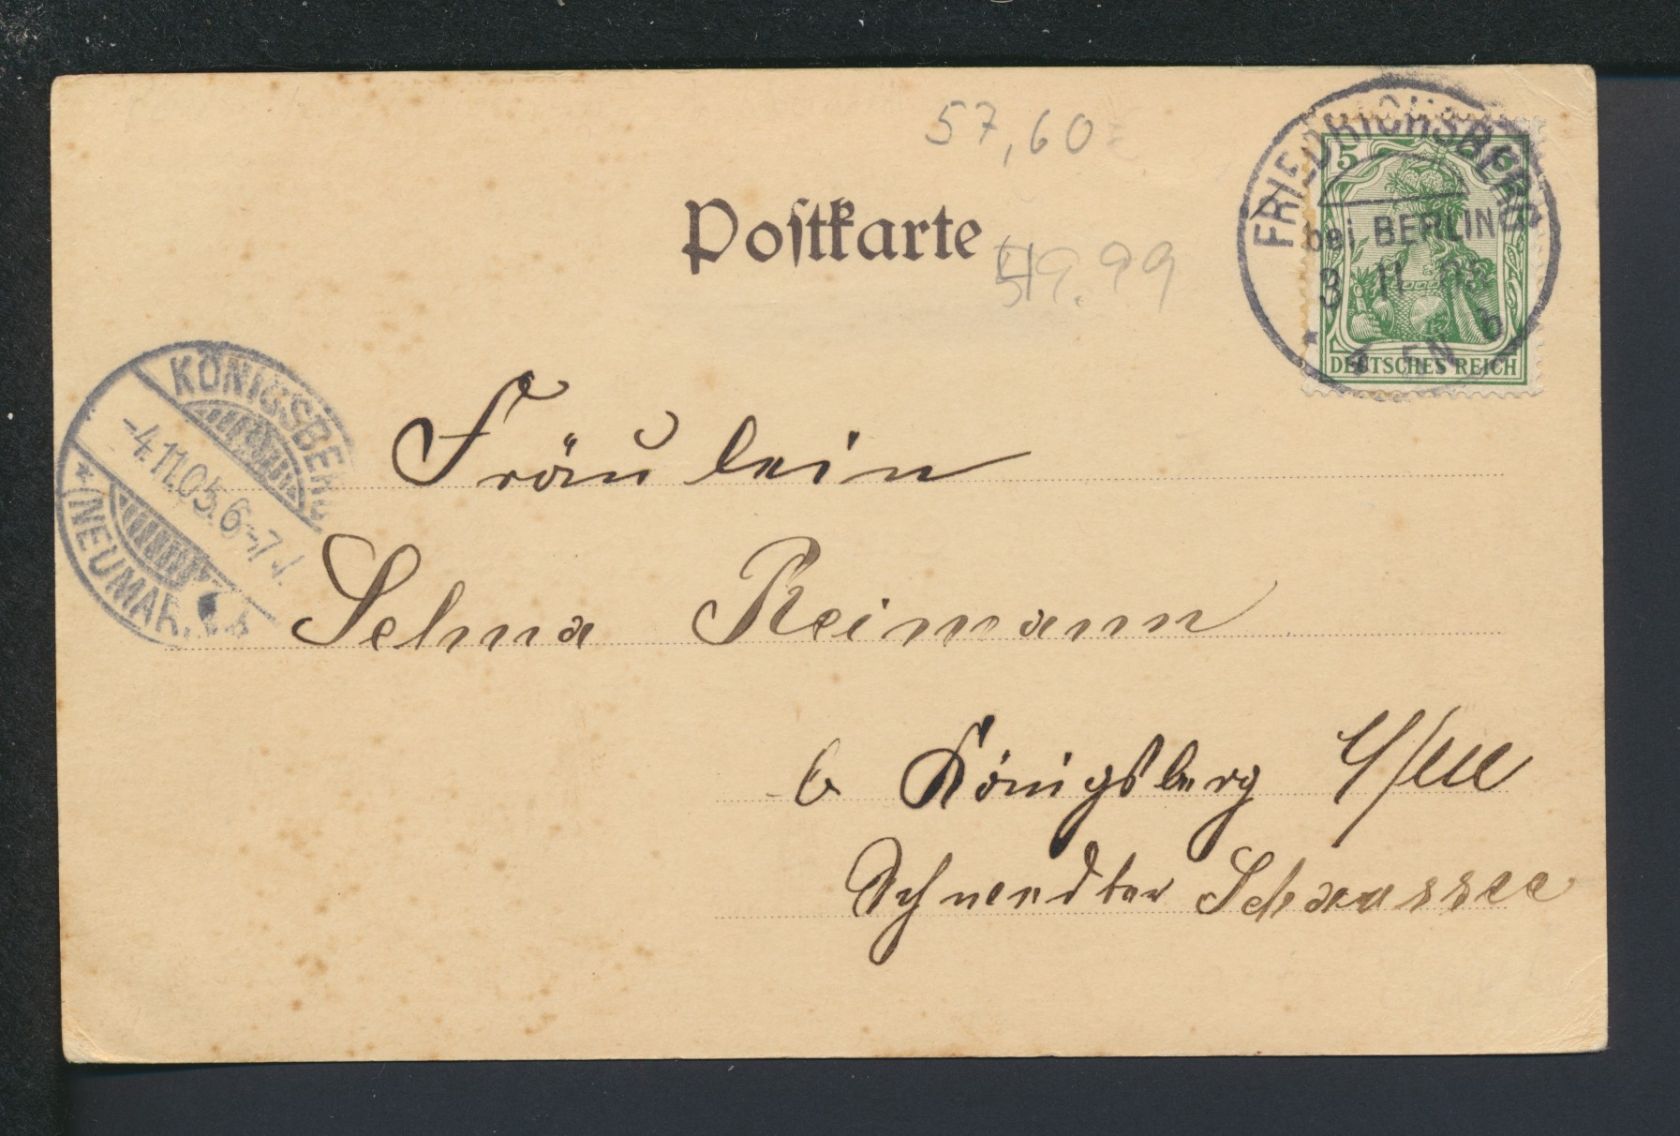 57,60
Postkarte
49.99
FRIEDRICHSBERG
bei BERLIN
3 11 05
b
5
DEUTSCHES REICH
KÖNIGSBERG
-4.11.05.6-7
(NEUMARK)
Fräulein
Selma Reimann
Königsberg N/M
Schaussee